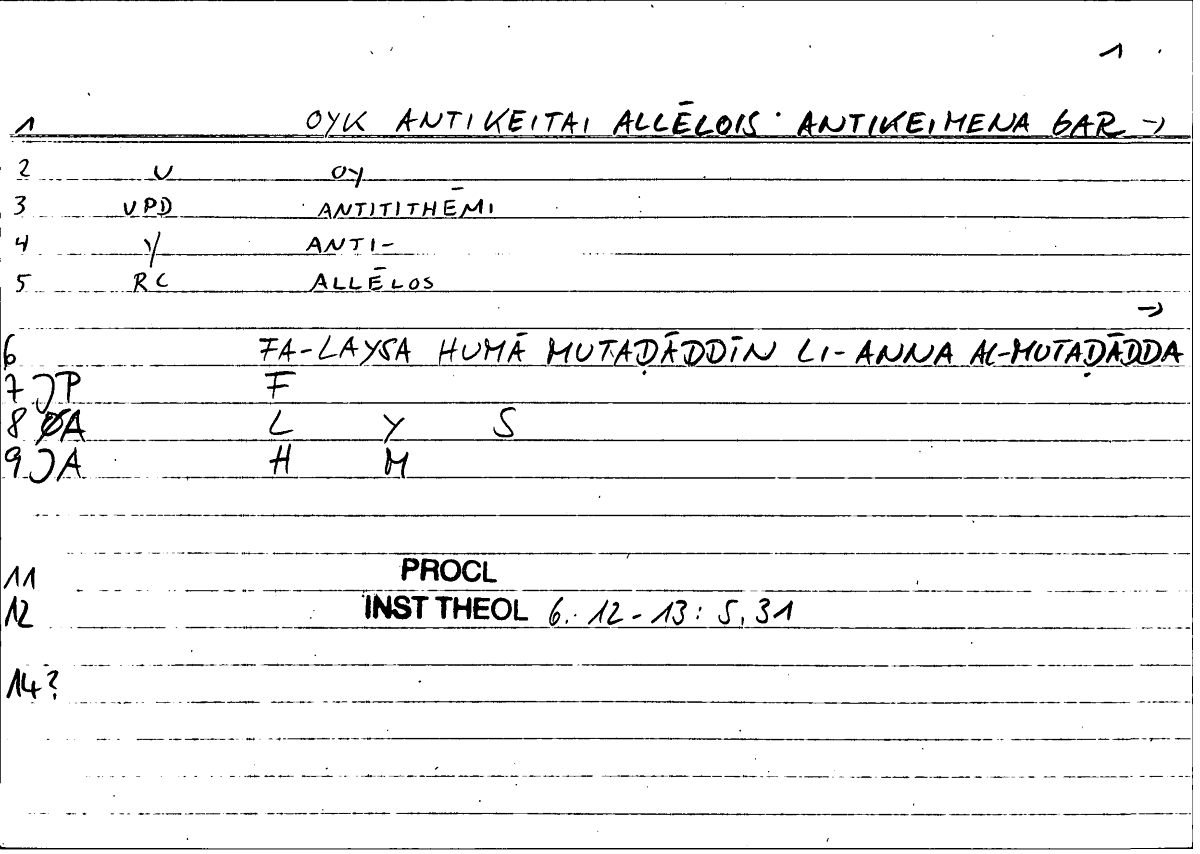 1
1 OYK ANTIKEITAI ALLĒLOIS · ANTIKEIMENA GAR →
2 U OY
3 VPD ANTITITHĒMI
4 Y ANTI-
5 RC ALLĒLOS
→
6 FA-LAYSA HUMĀ MUTAḌĀDDĪN LI-ANNA AL-MUTAḌĀDDA
7 JP F
8 ØA L Y S
9 JA H M
11 PROCL
12 INST THEOL 6: 12-13: 5, 31
14?